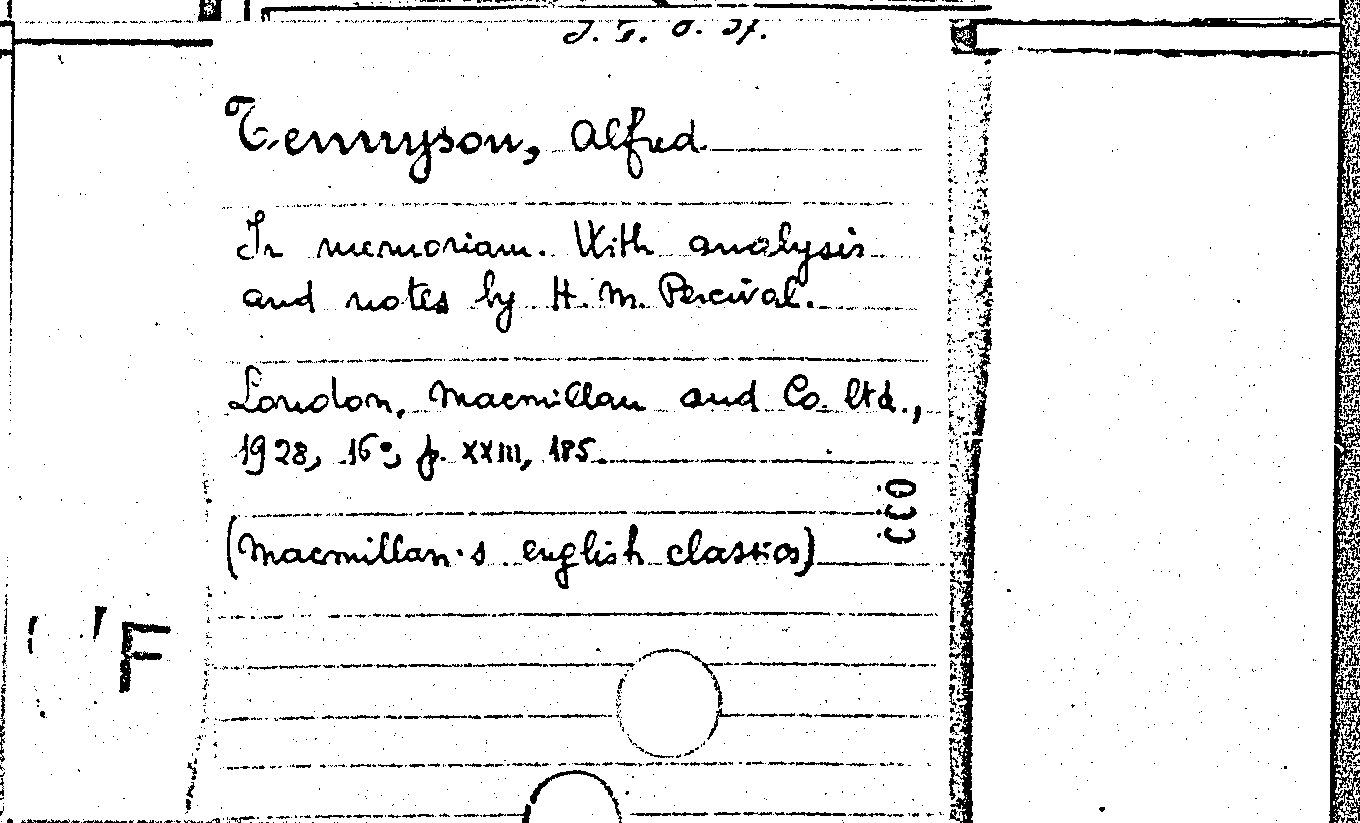 Tennyson, Alfred.
In memoriam. With analysis
and notes by H. M. Percival.
London, Macmillan and Co. ltd.,
1928, 16º, p. XXIII, 185.
(Macmillan's english classics)
F